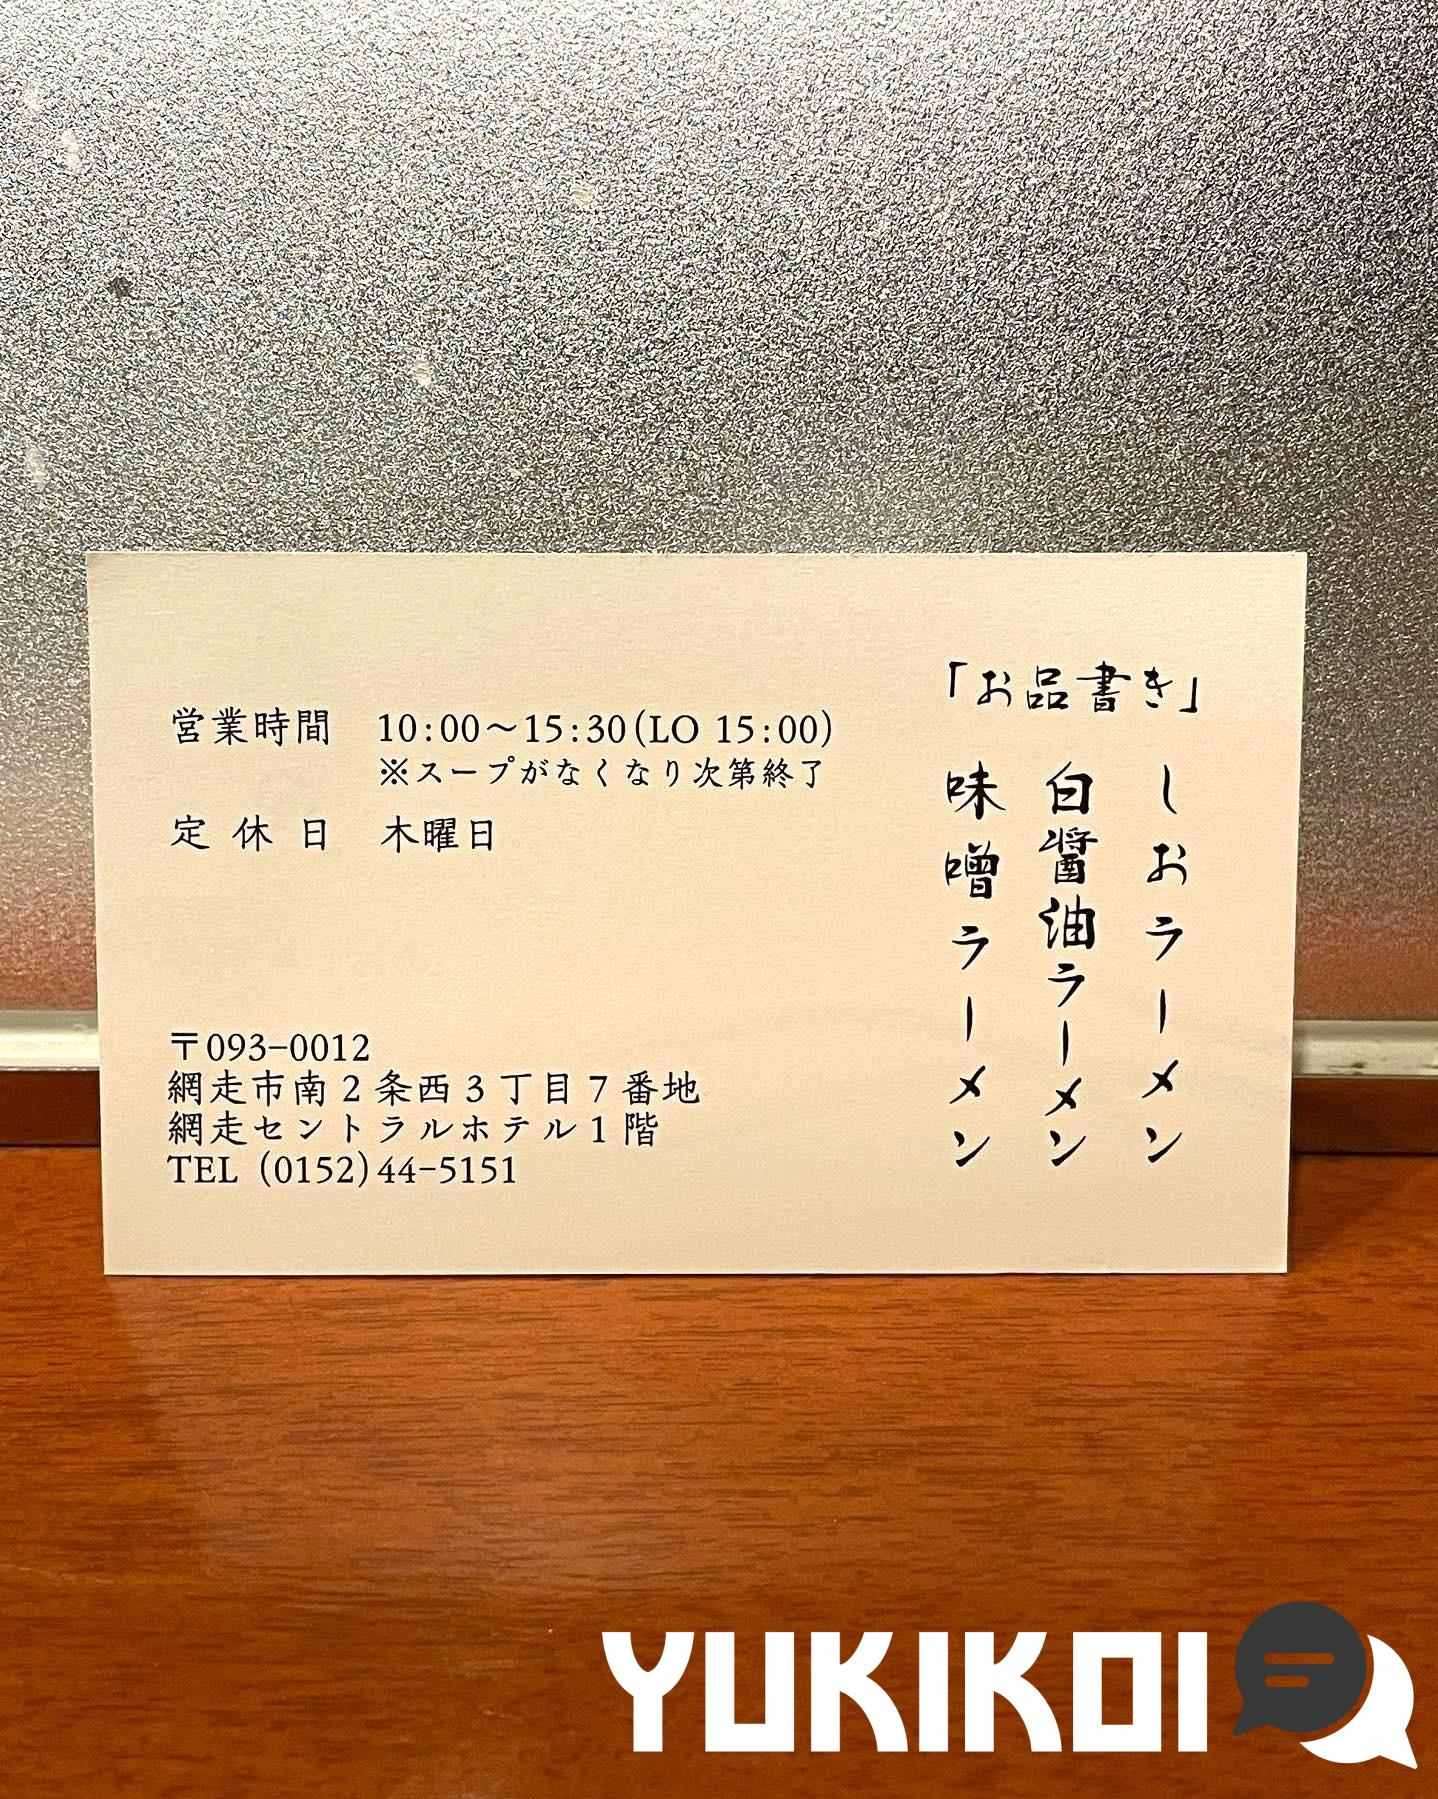 営業時間 10:00～15:30(LO 15:00)
※スープがなくなり次第終了
定休日 木曜日
〒093-0012
網走市南2条西3丁目7番地
網走セントラルホテル1階
TEL (0152)44-5151
「お品書き」
しおラーメン
白醤油ラーメン
味噌ラーメン
YUKIKOI